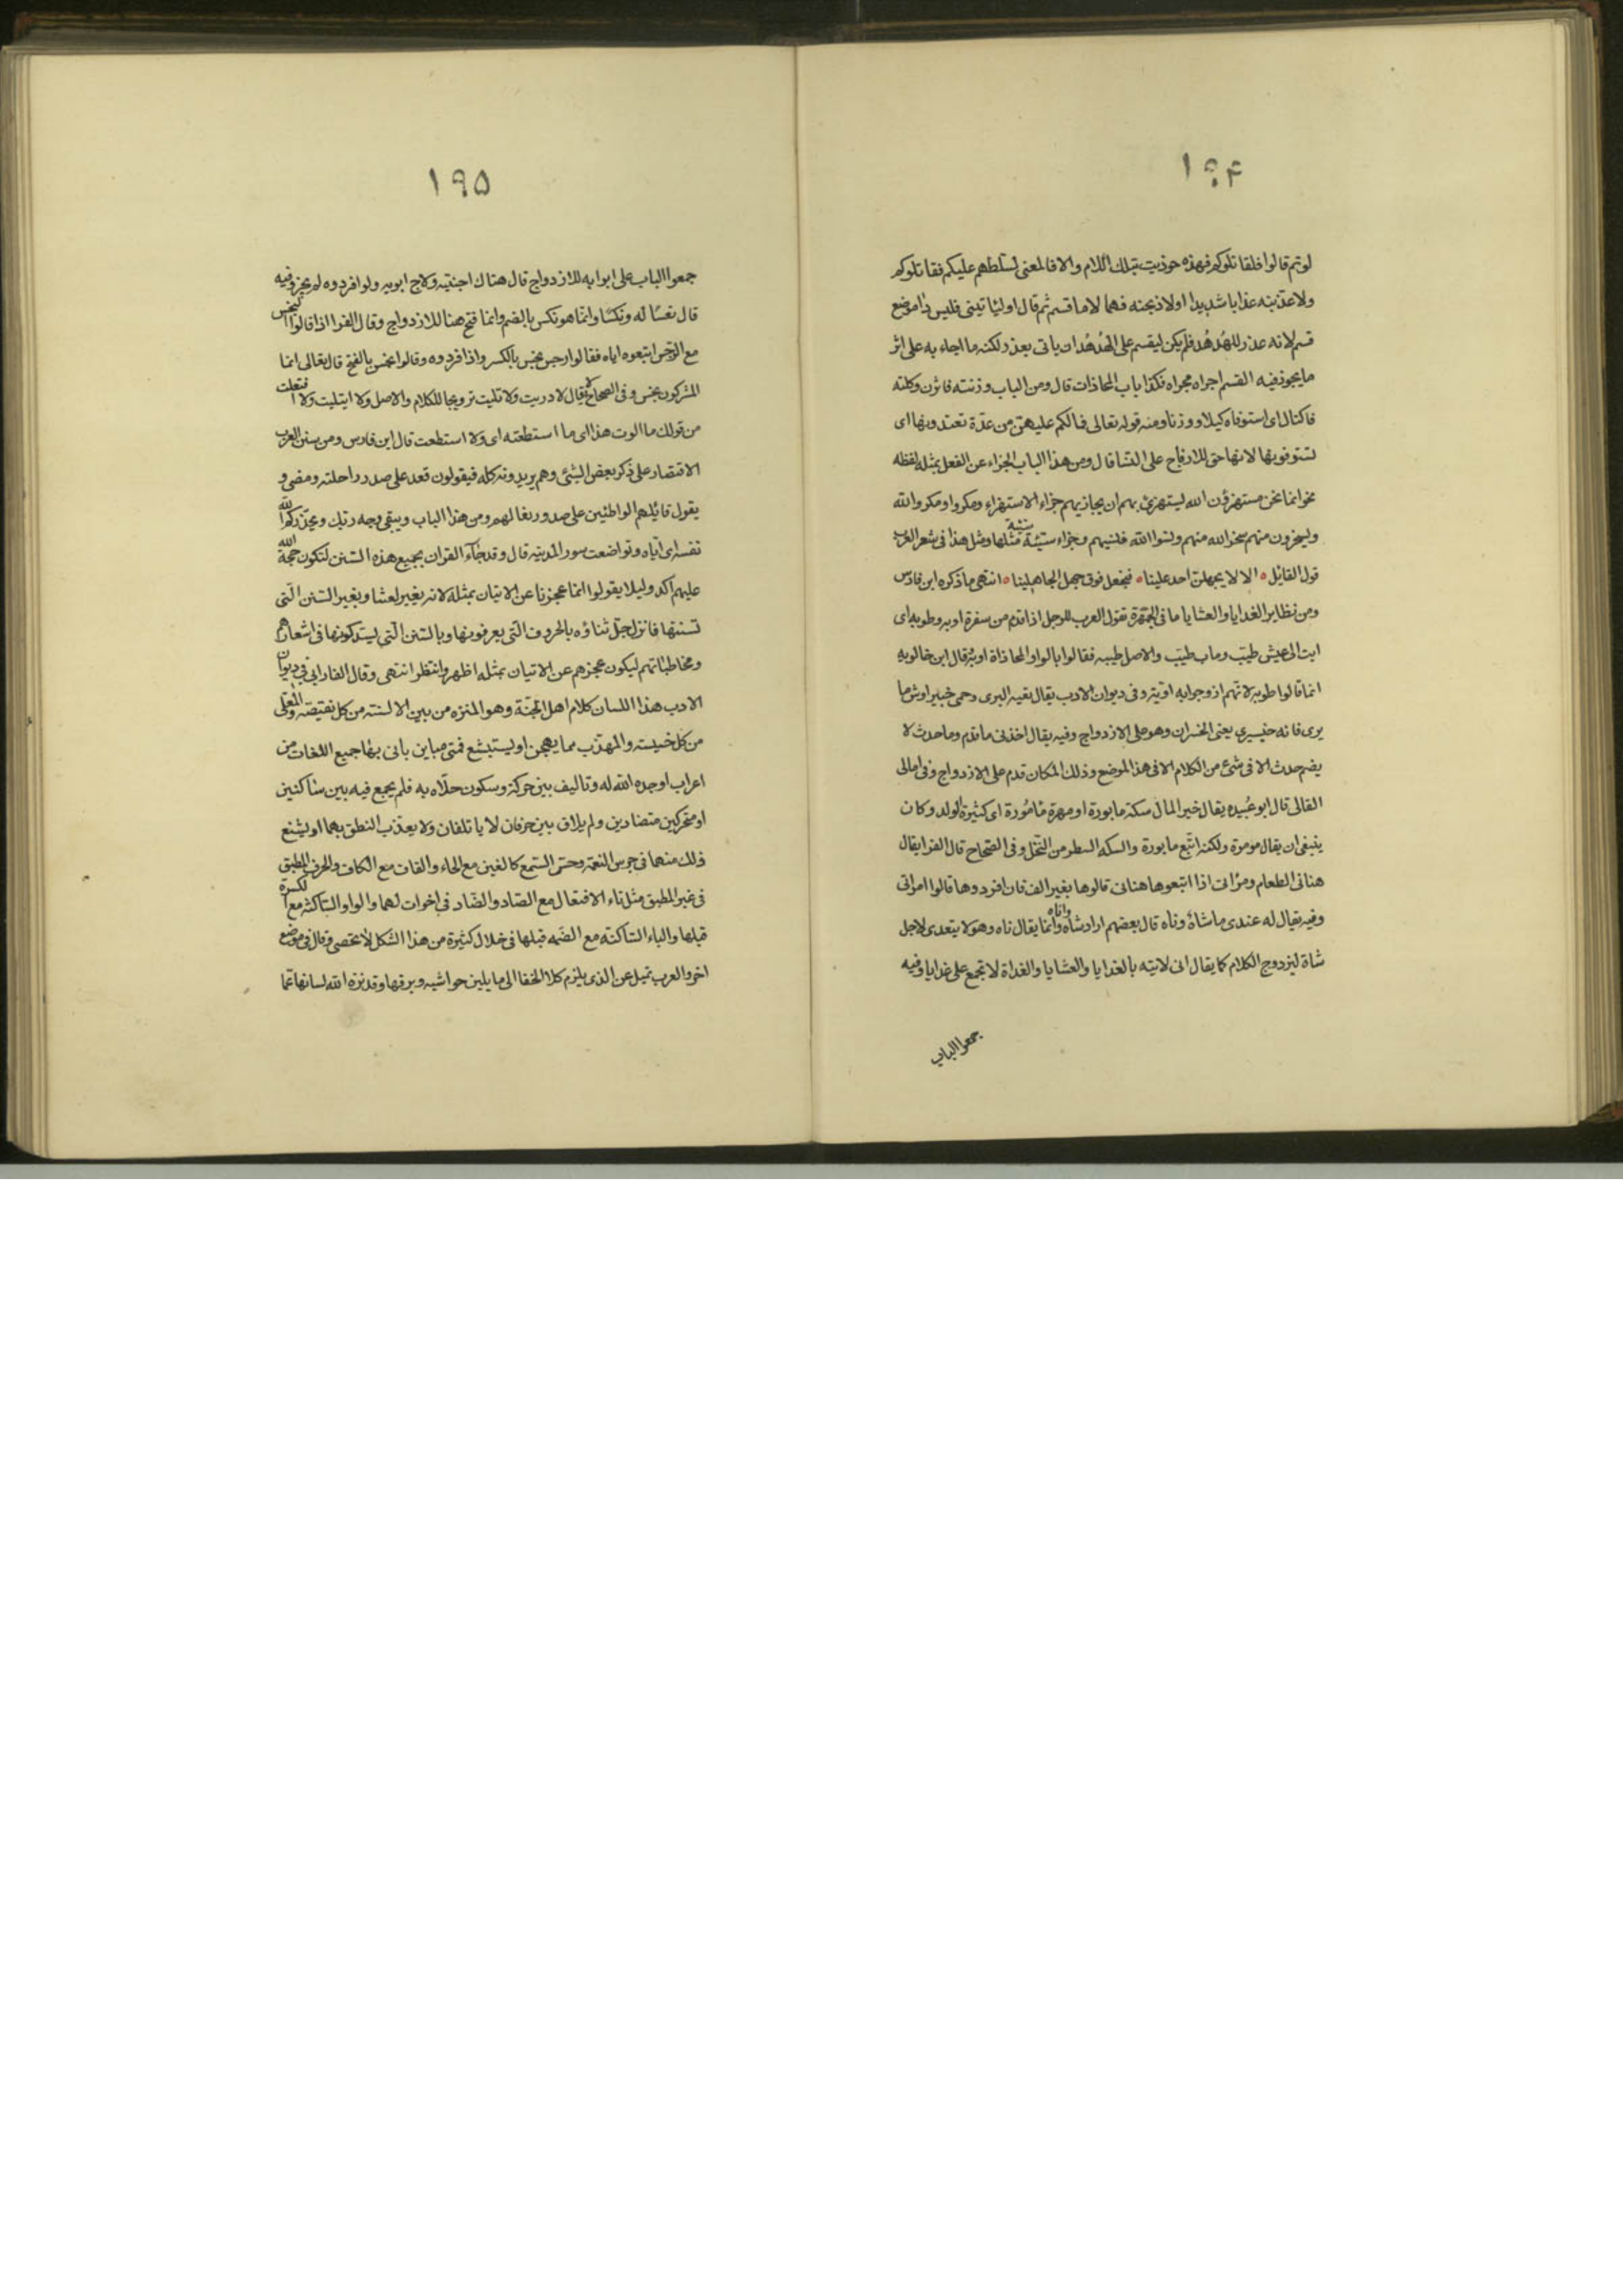 ١٩۴
لوتم قالوا فلقاتلوكم فهذه حوذيت بتلك اللام والا فالمعنى لسلطهم عليكم فقاتلوكم
ولاعذبنه عذابا شديدا اولاذبحنه فهما لاما قسم ثم قال اولياتينى فليس ذا موضع
قسم لانه عذر للهدهد فلم يكن ليقسم على الهدهد ان ياتى بعذر لكنه ما اجاء به على اثر
ما يجوز فيه القسم اجراه مجراه فكذا باب المحاذات قال ومن الباب وزنته فاتزن وكلته
فاكتال اى استوفاه كيلا ووزنا ومنه قوله تعالى فما لكم عليهن من عدة تعتدونها اى
تستوفونها لانها حق للازواج على النسا قال ومن هذا الباب الجزاء عن الفعل بمثل لفظه
نحو انما نحن مستهزؤن الله يستهزئ بهم اى يجازيهم جزاء الاستهزاء ومكروا ومكر الله
ويسخرون منهم سخر الله منهم ونسوا الله فنسيهم وجزاء سيئة سيئة مثلها ومثل هذا فى شعر العرب
قول القائل ٥ الا لا يجهلن احد علينا ٥ فنجهل فوق جهل الجاهلينا ٥ انتهى ما ذكره ابن فارس
ومن نظاير الغدايا والعشايا ما فى الجمهرة تقول العرب للرجل اذا قدم من سفرة اوبه وطوبه اى
ابت الى عيش طيب وماب طيب والاصل طيبه فقالوا بالواو لمحاذاة اوبه وقال ابن خالويه
انما قالوا طوبه لانهم ازوجوا به اوبة وفى ديوان الادب يقال بفيه البرى وحمى خيبر اوشر ما
يرى فانه خيسرى يعنى الخسران وهو على الازدواج وفيه يقال اخذنى ما قدم وما حدث لا
يضم حدث الا فى شئ من الكلام الا فى هذا الموضع وذلك لمكان قدم على الازدواج وفى امالى
القالى قال ابو عبيده يقال خير المال سكة مابورة او مهرة مامورة اى كثيرة الولد وكان
ينبغى ان يقال مومرة ولكنه اتبع مابورة والسكه السطر من النخل وفى الصحاح قال الفرا يقال
هنانى الطعام ومرانى اذا اتبعوها هنانى قالوها بغير الف فان افردوها قالوا امرانى
وفيه يقال له عندى ما ساه وناه قال بعضهم اراد ساه واناه وانما يقال ناه وهو لا يتعدى لاجل
ساه ليزدوج الكلام كما يقال انى لاتيه بالغدايا والعشايا والغداة لا تجمع على غدايا وفيه
جمعوا الباب
١٩۵
جمعوا الباب على ابوابه للازدواج قال هتاك اخبية ولاج ابوبه ولو افردوه لم يجز وفيه
قال تعسا له ونكسا وانما هو نكس بالضم وانما فتح هنا للازدواج وقال الفرا اذا قالوا النجس
مع الرجس اتبعوه اياه فقالوا رجس نجس بالكسر واذا افردوه وقالوا نجس بالفتح قال تعالى انما
المشركون نجس وفى الصحاح يقال لا دريت ولا تليت تزويجا للكلام والاصل ولا ايتليت ولا افتعلت
من قولك ما الوت هذا اى ما استطعته اى ولا استطعت قال ابن فارس ومن سنن العرب
الاقتصار على ذكر بعض الشئ وهم يريدونه كله فيقولون قعد على صدر راحلته ومضى و
يقول قائلهم الواطئين على صدور نعالهم ومن هذا الباب ويبقى وجه ربك ويحذركم الله
نفسه اى اياه وتواضعت سور المدينه قال وقد جاء القران بجميع هذه السنن لتكون حجة الله
عليهم اكد وليلا يقولوا انما عجزنا عن الاتيان بمثله لانه بغير لغتنا وبغير السنن التى
نستنها فانزل جل ثناؤه بالحروف التى يعرفونها وبالسنن التى يسلكونها فى اشعارهم
ومخاطباتهم ليكون عجزهم عن الاتيان بمثله اظهر وانتظر انتهى وقال الفارابى فى ديوان
الادب هذا اللسان كلام اهل الجنة وهو المنزه من بين الالسنه من كل نقيصه والمعلى
من كل خسيسه والمهذب مما يهجن او يستبشع فمتى مباين بانى بها جميع اللغات من
اعراب اوجده الله له وتاليف بين حركة وسكون حلاه به فلم يجمع فيه بين ساكنين
او متحركين متضادين ولم يلاق بين حرفان لا ياتلفان ولا يعذب النطق بهما او يشنع
ذلك منهما فى جرس النغمة وحس السمع كالغين مع الحاء والقاف مع الكاف والحرف المطبق
فى غير المطبق مثل تاء الافتعال مع الصاد والضاد فى اخوات لهما والواو الساكنه مع الكسرة
قبلها والياء الساكنه مع الضمه قبلها فى خلال كثيرة من هذا الشكل لا تحصى وقال فى موضع
اخر والعرب تميل عن الذى يلزم كلا الخفا الى ما يلين حواشيه ويرقها وقد نزه الله لسانها عما